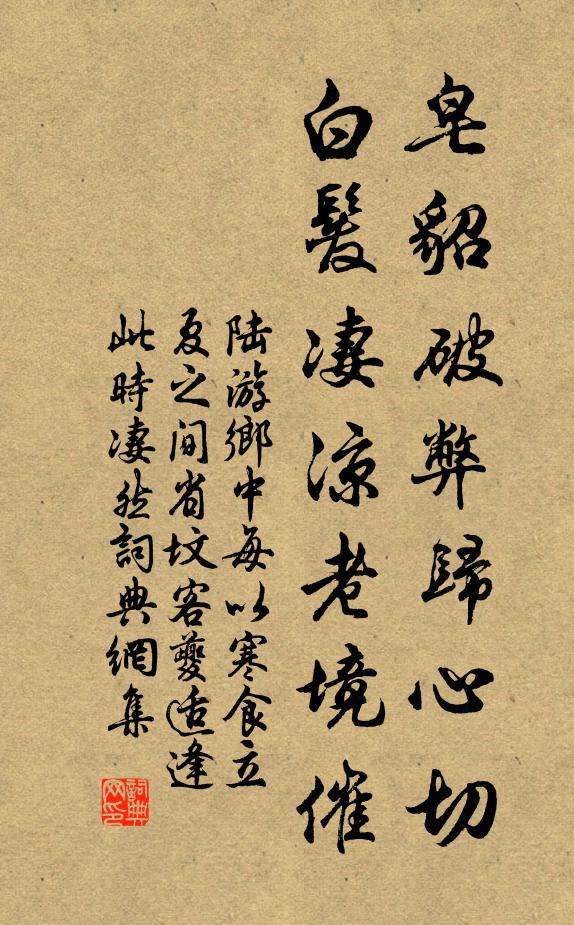 皂貂破弊歸心切
白髮凄涼老境催
陆游鄉中每以寒食立
夏之间省坟客夔适逢
此時凄然詞典網集
詞典网印